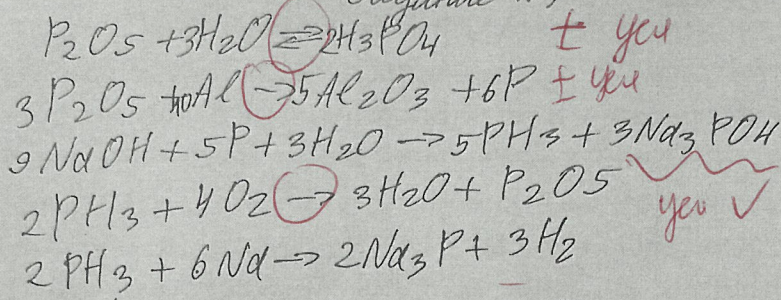 P2O5 + 3H2O ⇌ 2H3PO4 ± усл
3P2O5 + 10Al → 5Al2O3 + 6P ± усл
9NaOH + 5P + 3H2O → 5PH3 + 3Na3PO4
2PH3 + 4O2 → 3H2O + P2O5 усл ✓
2PH3 + 6Na → 2Na3P + 3H2